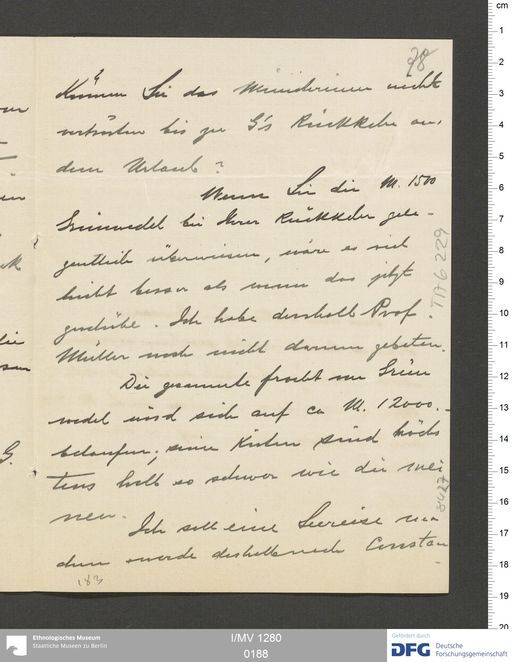 98
Können Sie das Ministerium nicht
vertrösten bis zu G's Rückkehr aus
dem Urlaub?
Wenn Sie die M. 1500
Grünwedel bei Ihrer Rückkehr gele-
gentlich überwiesen, wäre es viel
leicht besser als wenn das jetzt
geschähe. Ich habe desshalb Prof.
Müller noch nicht darum gebeten.
Die gesammte fracht von Grün
wedel wird sich auf ca M. 12000.-
belaufen; seine Kisten sind höchs
tens halb so schwer wie die mei
nen.
Ich soll eine Seereise ma
chen werde deshalb nach Constan
-
183
TIA 6229
8427
G.
cm
1
2
3
4
5
6
7
8
9
10
11
12
13
14
15
16
17
18
19
20
Ethnologisches Museum
Staatliche Museen zu Berlin
I/MV 1280
0188
Gefördert durch
DFG Deutsche
Forschungsgemeinschaft